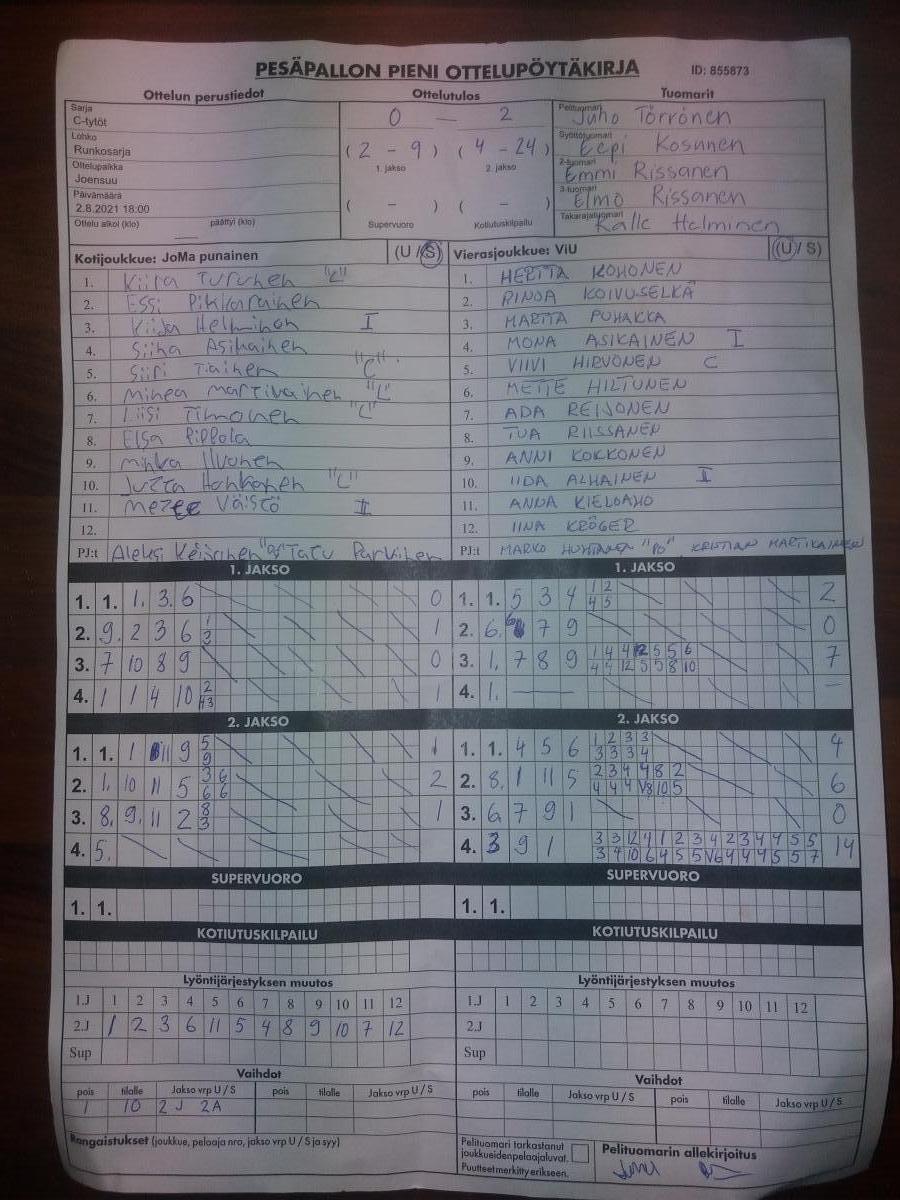 PESÄPALLON PIENI OTTELUPÖYTÄKIRJA ID: 855873
Ottelun perustiedot Ottelutulos Tuomarit
Sarja
C-tytöt
Lohko
Runkosarja
Ottelupaikka
Joensuu
Päivämäärä
2.8.2021 18:00
Ottelu alkoi (klo) päättyi (klo)
0 — 2
(2 - 9) (4 - 24)
1. jakso 2. jakso
( - ) ( - )
Supervuoro Kotiutuskilpailu
Pelituomari
Juho Törrönen
Syöttötuomari
Eepi Kosunen
2-tuomari
Emmi Rissanen
3-tuomari
Elmo Rissanen
Takarajatuomari
Kalle Halminen
Kotijoukkue: JoMa punainen (U / S)
1. Kiira Turunen
2. Essi Pikkarainen
3. Kiija Helminen I
4. Siina Asikainen
5. Siiri Tiainen "C"
6. Minea Martikainen "L"
7. Liisi Timonen "L"
8. Elsa Pippola
9. Minka Ilvonen
10. Jutta Honkanen "L"
11. Väistö II
12.
PJ:t Aleksi Tatu Parviinen
Vierasjoukkue: ViU (U / S)
1. HERTTA KOHONEN
2. RINDA KOIVUSELKÄ
3. MARTTA PUHAKKA
4. MONA ASIKAINEN I
5. VIIVI HIRVONEN C
6. METTE HILTUNEN
7. ADA REIJONEN
8. TUA RIISSANEN
9. ANNI KOKKONEN
10. IIDA ALHAINEN II
11. ANNA KIELOAHO
12. IINA KRÖGER
PJ:t MARKO HUHTANEN "PO", KRISTIAN MARTIKAINEN
1. JAKSO
1. 1. 1. 3. 6 0
2. 9. 2 3 6 1 3 1
3. 7 10 8 9 0
4. 1 1 4 10 2 1
1. JAKSO
1. 1. 5 3 4 1 2 4 5 2
2. 6. 7 9 0
3. 1. 7 8 9 1 4 4 12 5 5 6 4 4 12 5 5 8 10 7
4. 1. — –
2. JAKSO
1. 1. 1 11 9 5 9 1
2. 1. 10 11 5 3 6 6 6 2
3. 8. 9. 11 2 8 3 1
4. 5.
2. JAKSO
1. 1. 4 5 6 1 2 3 3 3 3 3 4 4
2. 8. 1 11 5 2 3 4 4 8 2 4 4 4 V8 10 5 6
3. 6. 7 9 1 0
4. 3 9 1 3 3 12 4 1 2 3 4 2 3 4 4 5 5 3 4 10 6 4 5 5 V6 4 4 4 5 5 7 14
SUPERVUORO
1. 1.
SUPERVUORO
1. 1.
KOTIUTUSKILPAILU
KOTIUTUSKILPAILU
Lyöntijärjestyksen muutos
1.J 1 2 3 4 5 6 7 8 9 10 11 12
2.J 1 2 3 6 11 5 4 8 9 10 7 12
Sup
Lyöntijärjestyksen muutos
1.J 1 2 3 4 5 6 7 8 9 10 11 12
2.J
Sup
Vaihdot
pois tilalle Jakso vrp U / S pois tilalle Jakso vrp U / S
1 10 2 J 2A
Vaihdot
pois tilalle Jakso vrp U / S pois tilalle Jakso vrp U / S
Rangaistukset (joukkue, pelaaja nro, jakso vrp U / S ja syy)
Pelituomari tarkastanut
joukkueidenpelaajaluvat.
Puutteet merkitty erikseen.
Pelituomarin allekirjoitus